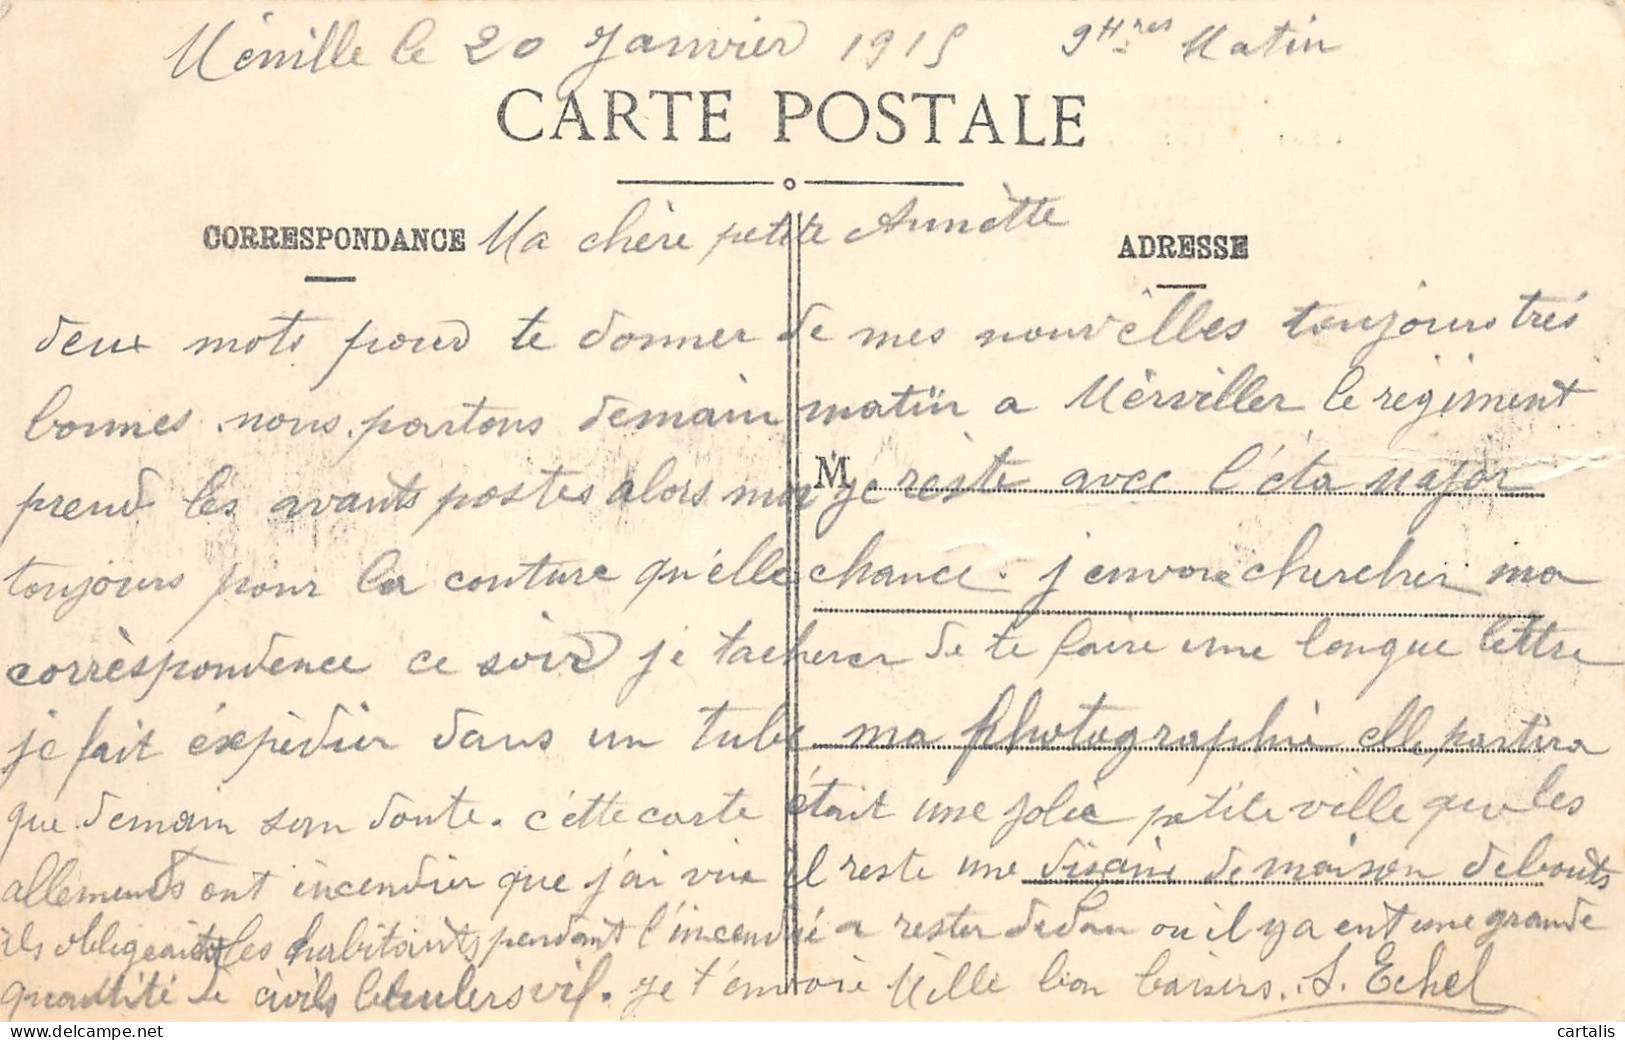 Ménille le 20 Janvier 1915 9 Hres Matin
CARTE POSTALE
CORRESPONDANCE Ma chère petite Annètte
ADRESSE
deux mots pour te donner de mes nouvèlles toujours très
bonnes. nous partons demain matin a Mèrviller le regiment
prend les avants postes alors moi je reste avec l'éta major
M
toujours pour la couture qu'élle chance. j'envoie chercher ma
corrèspondence ce soir je tacherer de te faire une longue lettre
je fait éxpèdier dans un tube ma photographie elle partira
que demain san doute. cétte carte était une jolie petite ville que les
allemends ont incendier que j'ai vue il reste une disaine de maison debouts
ils obligeaits les habitants pendant l'incendie a rester dedan ou il y a ent une grande
quantité de civils bruler vif. je t'envoie Mille bon baisers. S. Echel
cartalis